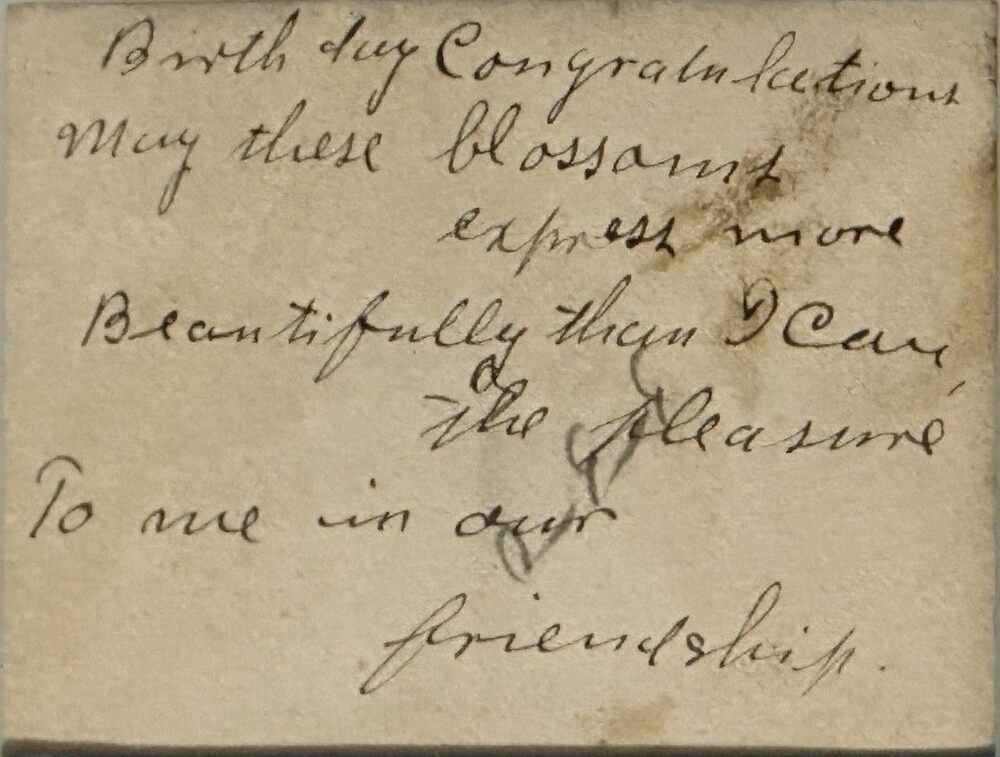 Birth day Congratulations
May these blossoms
express more
Beautifully than I Can,
The pleasure
To me in our
friendship.